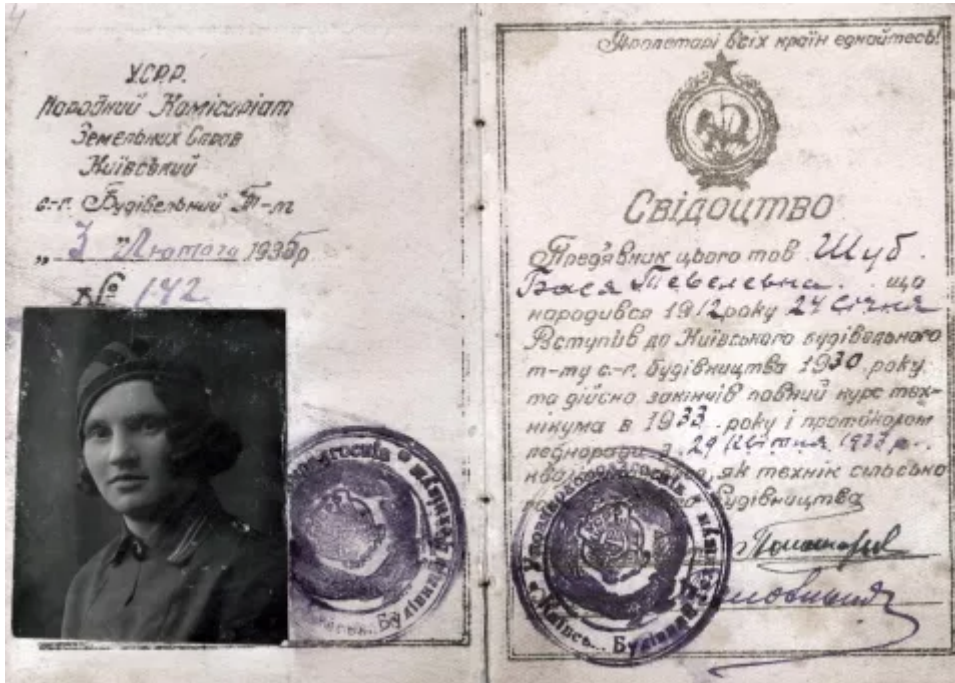 У.С.Р.Р.
Народний Комісаріат
Земельних Справ
Київський
с.-г. Будівельний Т-м
„ 3 " Лютого 1935р
№ 142
Пролетарі всіх країн єднайтесь!
Свідоцтво
Пред'явник цього тов. Шуб
Бася Тевелевна. що
народився 1912 року 24 січня
Вступив до Київського будівельного
т-му с.-г. будівництва 1930 року
та дійсно закінчів повний курс тех-
нікума в 1933 року і протоколом
педноради з 29 квітня 1933 р.
як технік сільсько
будівництва